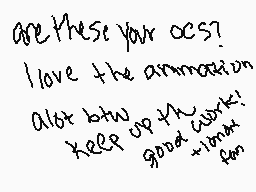 are these your ocs?
I love the animation
alot btw
keep up the
good work!
+1 more
fan